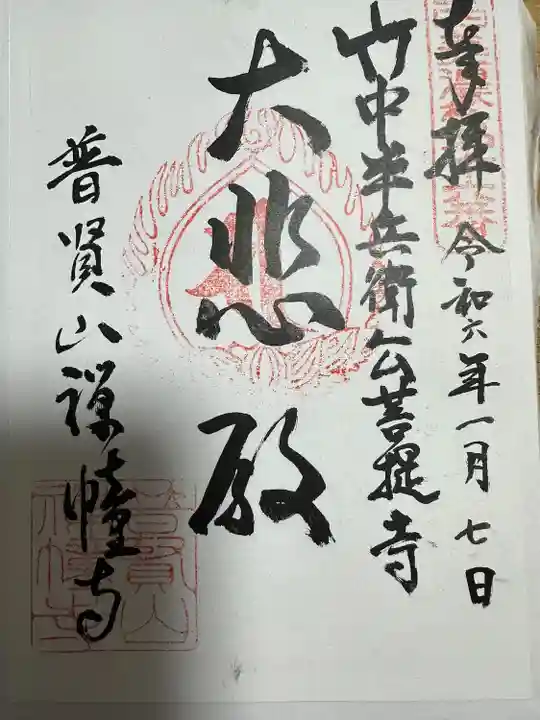 奉拝
令和六年一月七日
竹中半兵衛公菩提寺
大悲殿
普賢山禅幢寺